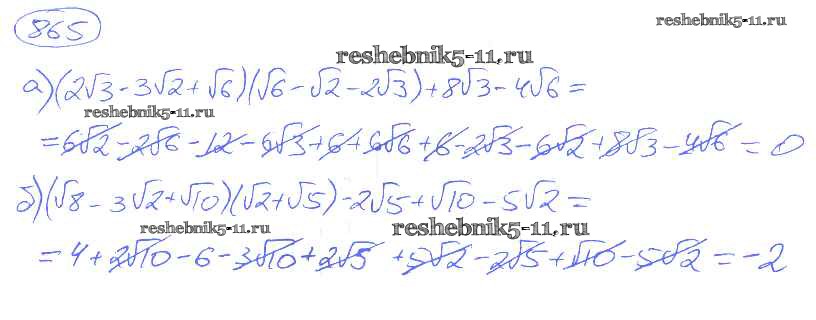 865
reshebnik5-11.ru
reshebnik5-11.ru
а) (2√3 - 3√2 + √6)(√6 - √2 - 2√3) + 8√3 - 4√6 =
reshebnik5-11.ru
= 6√2 - 2√6 - 12 - 6√3 + 6 + 6√6 + 6 - 2√3 - 6√2 + 8√3 - 4√6 = 0
б) (√8 - 3√2 + √10)(√2 + √5) - 2√5 + √10 - 5√2 =
reshebnik5-11.ru
reshebnik5-11.ru
= 4 + 2√10 - 6 - 3√10 + 2√5 + 5√2 - 2√5 + √10 - 5√2 = -2